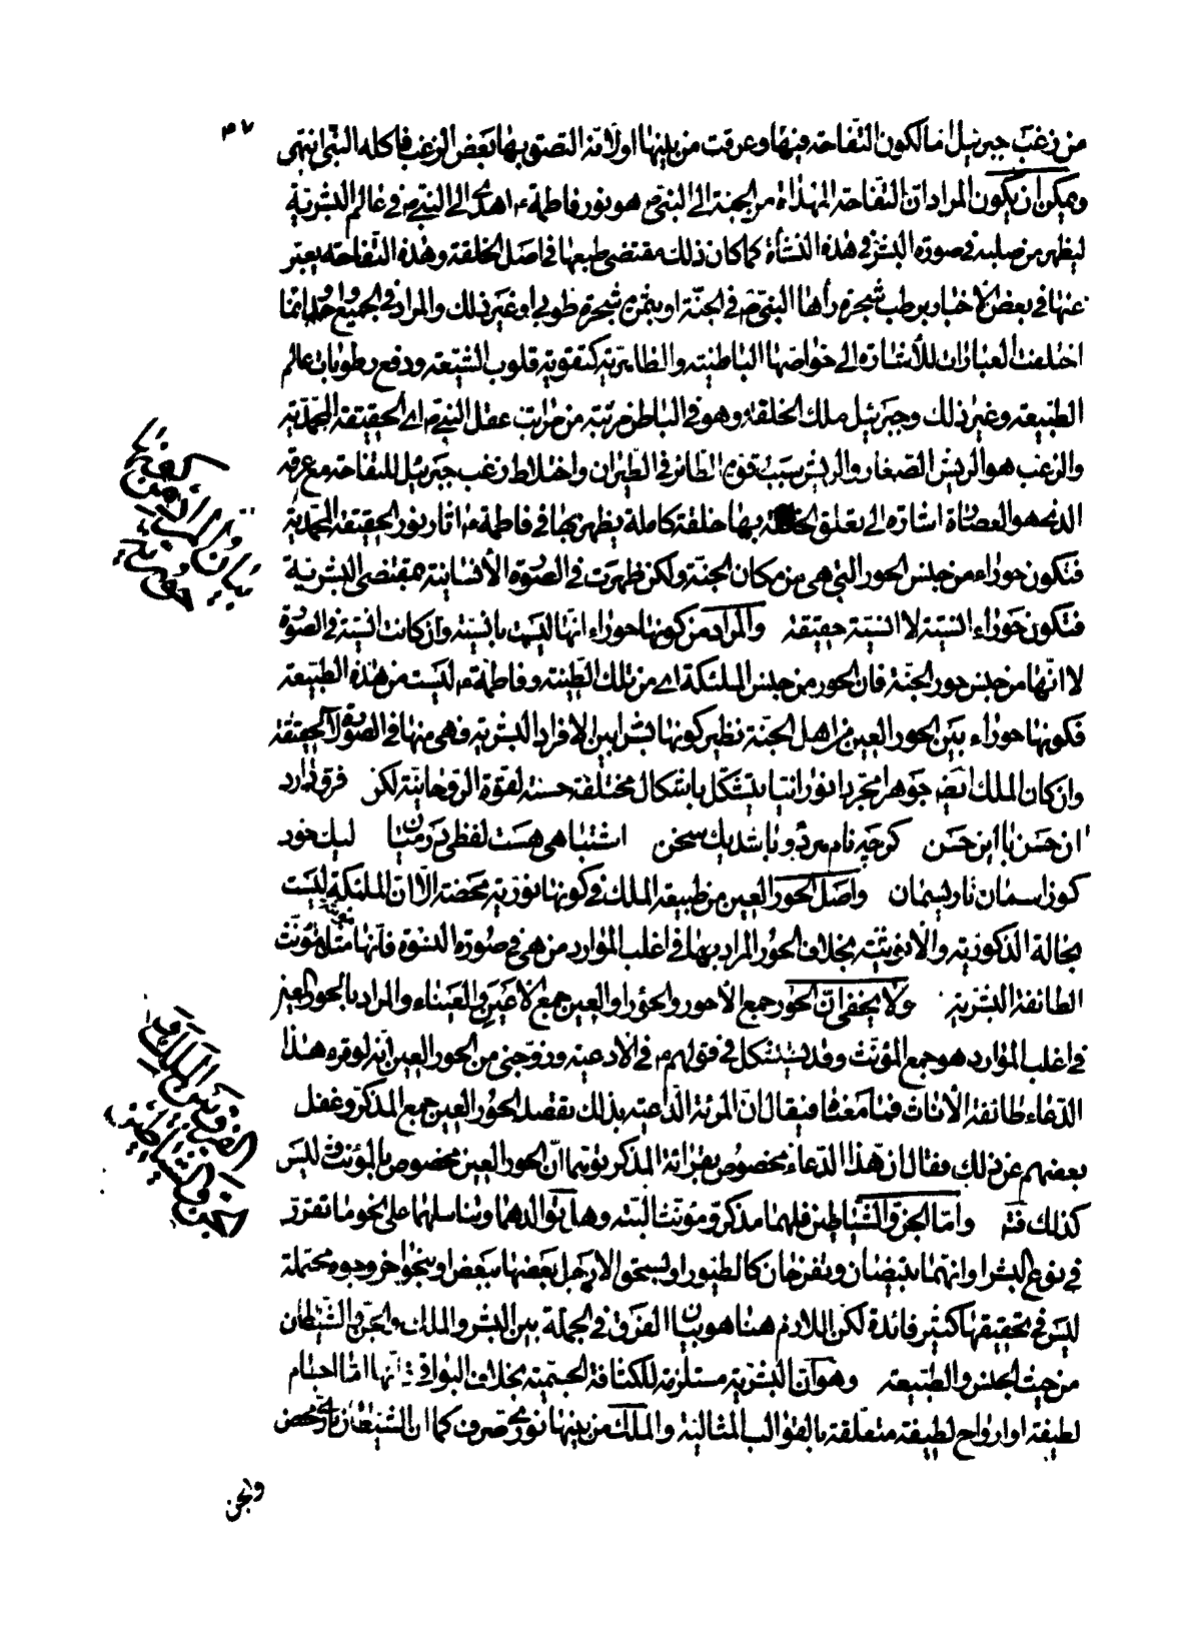 ٤٧
من زغب جبرئيل اما لكون التفاحة فيها وعرقت من بينها اولانه التصق بها بعض الزغب فاكله النبى انتهى
ويمكن ان يكون المراد ان التفاحة المهداة من الجنة الى النبى ص هو نور فاطمة ع اهدى الى النبى ص فى عالم البشرية
ليظهر من صلبه فى صورة البشر فى هذه النشأة كما كان ذلك مقتضى طبعها فى اصل الخلقة وهذه التفاحة يعبر
عنها فى بعض الاخبار برطب شجرة رأها النبى ص فى الجنة او بثمر من شجرة طوبى او غير ذلك والمراد فى الجميع واحد وانما
اختلفت العبارات للأشارة الى خواصها الباطنية والظاهرية كتقوية قلوب الشيعة ودفع رطوبات عالم
الطبيعة وغير ذلك وجبرئيل ملك الخلقة وهو فى الباطن مرتبة من مراتب عقل النبى ص اى الحقيقة المحمدية
والزغب هو الريش الصغار والريش سبب قوة الطائر فى الطيران واختلاط زغب جبرئيل للتفاحة مع عرقه
الذى هو العصارة اشارة الى تعلق بها خلقة كاملة يظهر بها فى فاطمة ع اثار نور الحقيقة المحمدية
فتكون حوراء من جنس الحور التى هى من مكان الجنة ولكن ظهرت فى الصورة الأنسانية بمقتضى البشرية
فتكون حوراء انسية لا انسية حقيقة والمراد من كونها حوراء انها ليست بانسية وان كانت انسية فى الصورة
لا انها من جنس حور الجنة فان الحور من جنس الملئكة اى من تلك الطينة وفاطمة ع ليست من هذه الطبيعة
فكونها حوراء بين الحور العين من اهل الجنة نظير كونها بشرا بين الافراد البشرية فهى منها فى الصورة لا الحقيقة
وان كان الملك ايضا جوهرا مجردا نورانيا يتشكل باشكال مختلفة حسنة لقوة الروحانية لكن فرق دارد
ان حسن با ابن حسن كرچه نام هر دو باشد يك سخن اشتباهى هست لفظى در ميان ليك خود
كو آسمان تا ريسمان واصل الحور العين من طبيعة الملك فى كونها نورية محضة الا ان الملئكة ليست
بحالة الذكورية والانوثية بخلاف الحور المراد بها فى اغلب الموارد من هى فى صورة النسوة فانها مثل مؤنث
الطائفة البشرية ولا يخفى ان الحور جمع الأحور والحوراء والعين جمع الاعين والعيناء والمراد بالحور العين
فى اغلب الموارد هو جمع المؤنث وقد يستشكل فى قولهم ع فى الادعية وزوجنى من الحور العين انه لو قرء هذا
الدعاء طائفة الأناث فما معناه فيقال ان المرئة الداعية بذلك تقصد الحور العين جمع المذكر وغفل
بعضهم عن ذلك فقال ان هذا الدعاء مخصوص بقرائة المذكر توهما ان الحور العين مخصوص بالمؤنث وليس
كذلك واما الجن والشياطين فلهما مذكر ومؤنث البتة وهل توالدهما وتناسلهما على نحو ما تقرر
فى نوع البشر او انهما يبيضان ويفرخان كالطيور او لسحق الارجل بعضها ببعض او بنحو اخر وجوه محتملة
ليس فى تحقيقها كثير فائدة لكن اللازم هنا هو بيان الفرق فى الجملة بين البشر والملك والجن والشيطان
من حيث الجنس والطبيعة وهو ان البشرية مستلزمة للكثافة الجسمية بخلاف البواقى فانها اما اجسام
لطيفة او ارواح لطيفة متعلقة بالقوالب المثالية والملك من بينها نور صرف كما ان الشيطان نار محض
والجن
الفرق بين الملك و
الجن والشياطين